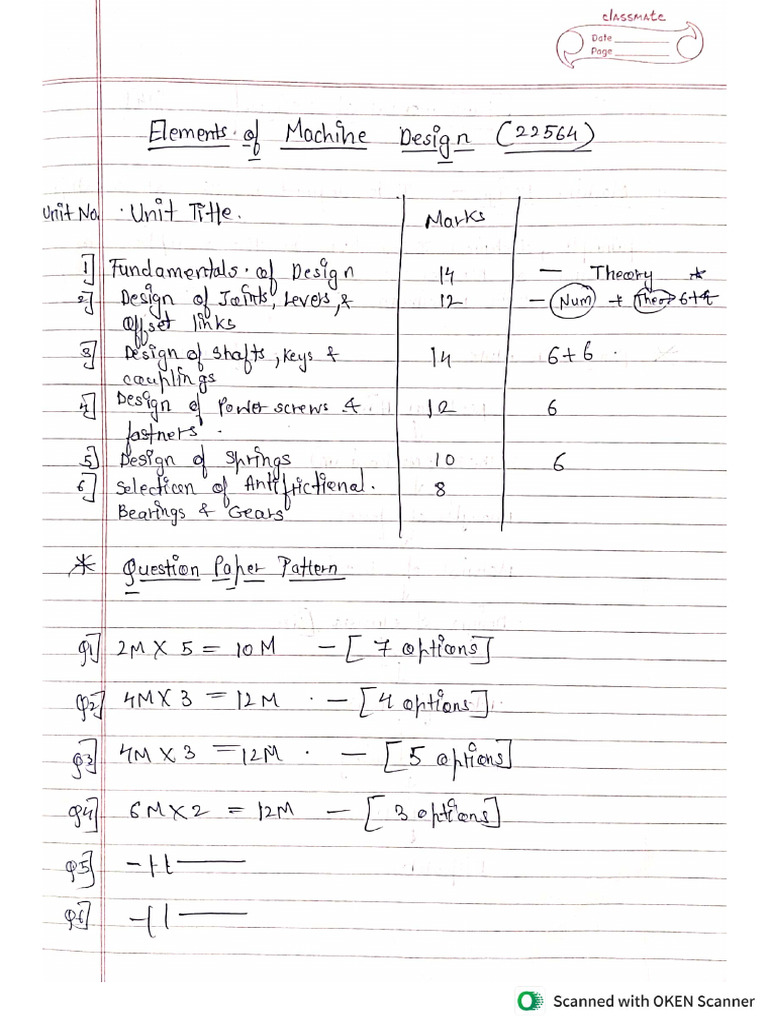 classmate
Date
Page
Elements of Machine Design (22564)
Unit No. Unit Title. Marks
1] Fundamentals of Design 14 — Theory *
2] Design of Joints, Levers, & 12 — Num + Theo 6+4
offset links
3] Design of shafts, keys & 14 6+6
couplings
4] Design of Power screws & 12 6
fastners
5] Design of springs 10 6
6] Selection of Antifrictional 8
Bearings & Gears
* Question Paper Pattern
Q1] 2M X 5 = 10M — [7 options]
Q2] 4M X 3 = 12M — [4 options]
Q3] 4M X 3 = 12M — [5 options]
Q4] 6M X 2 = 12M — [3 options]
Q5] —||—
Q6] —||—
Scanned with OKEN Scanner